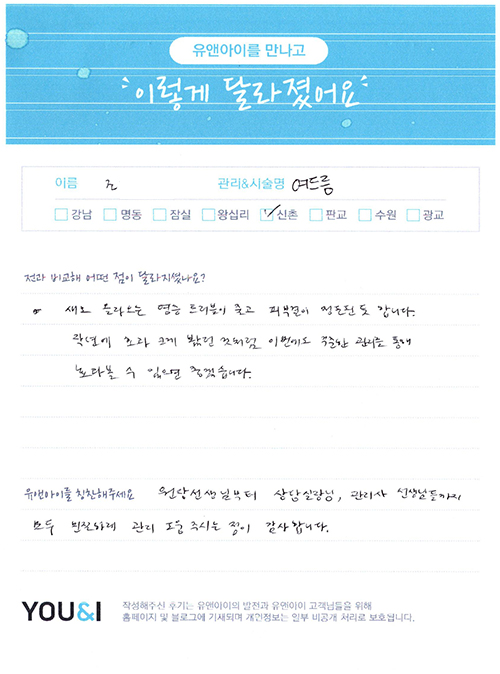 유앤아이를 만나고
이렇게 달라졌어요
이름 조 관리&시술명 여드름
강남 명동 잠실 왕십리 신촌 판교 수원 광교
전과 비교해 어떤 점이 달라지셨나요?
새로 올라오는 염증 트러블이 줄고 피부결이 정돈된 듯 합니다.
작년에 효과 크게 봤던 것처럼 이번에도 꾸준한 관리를 통해
효과볼 수 있으면 좋겠습니다.
유앤아이를 칭찬해주세요 원장선생님부터 상담실장님, 관리사 선생님들까지
모두 친절하게 관리 도움 주시는 점이 감사합니다.
YOU&I 작성해주신 후기는 유앤아이의 발전과 유앤아이 고객님들을 위해
홈페이지 및 블로그에 기재되며 개인정보는 일부 비공개 처리로 보호됩니다.